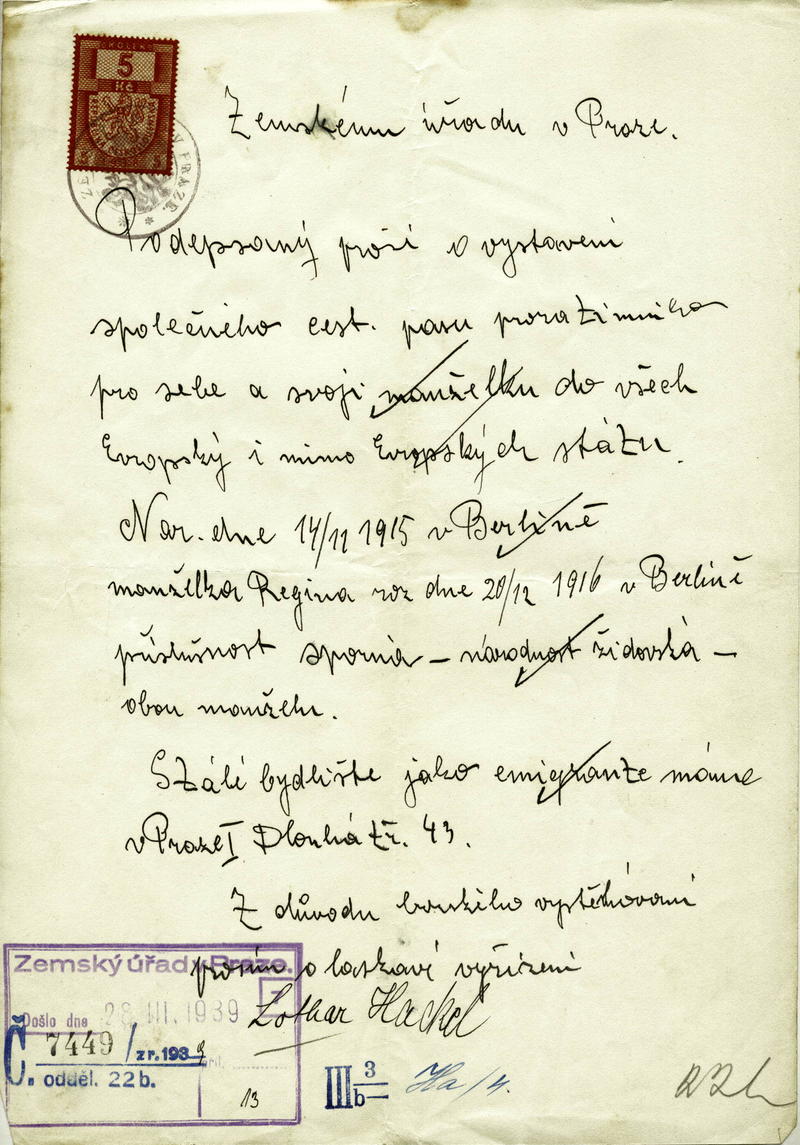 KOLEK
5
Kč
5 5
V PRAZE
Zemskému úřadu v Praze.
Podepsaný prosí o vystavení
společného cest. pasu
pro sebe a svoji manželku do všech
Evropský i mimo Evropských státu.
Nar. dne 14/11 1915 v Berlině
manželka Regina roz dne 20/12 1916 v Berlině
příslušnost sporná – národnost židovská –
obou manželu.
Stálé bydlište jako emigrante máme
v Praze I Dlouhá tř. 43.
Z důvodu brzkého vystěhování
prosím o laskavé vyřízení
Lothar Hackel
Zemský úřad v Praze.
Došlo dne 28 III. 1939
Č. 7449 / z r. 1939
odděl. 22b.
13
III 3/b
Ha/4.